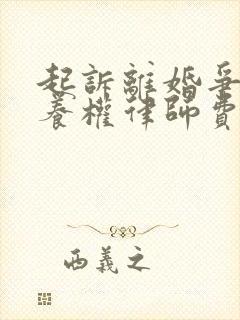 起訴離婚爭
養權律師費
西義之